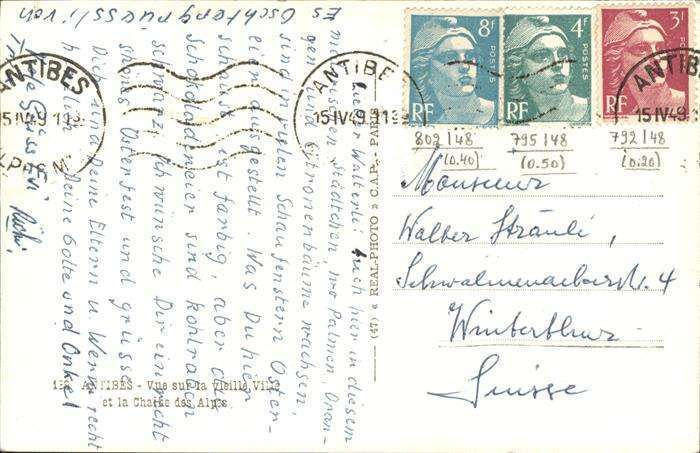 Lieber Walterli! Auch hier in diesem
malerischen Städtchen, wo Palmen, Oran-
gen- und Zitronenbäume wachsen,
sind in vielen Schaufenstern Oster-
eier ausgestellt. Was Du hier
schaust ist farbig, aber die
Schokoladeneier sind kohlraben
schwarz. Ich wünsche Dir ein recht
schönes Osterfest und grüsse
Dich und Deine Eltern u. Werni recht
herzlich Deine Gotte und Onkel
Es Oschtergrüessli von
Ruedi.
8F
POSTES
RF
4F
POSTES
RF
3F
POSTES
RF
ANTIBES
15 IV 49
ANTIBES
15 IV 49
ANTIBES
15 IV 49
802/48
(0.40)
795/48
(0.50)
792/48
(0.20)
Monsieur
Walter Sträuli,
Schwalmenackerstr. 4
Winterthur
Suisse
(47) « REAL-PHOTO » C.A.P. - PARIS
ANTIBES - Vue sur la Vieille Ville
et la Chaîne des Alpes